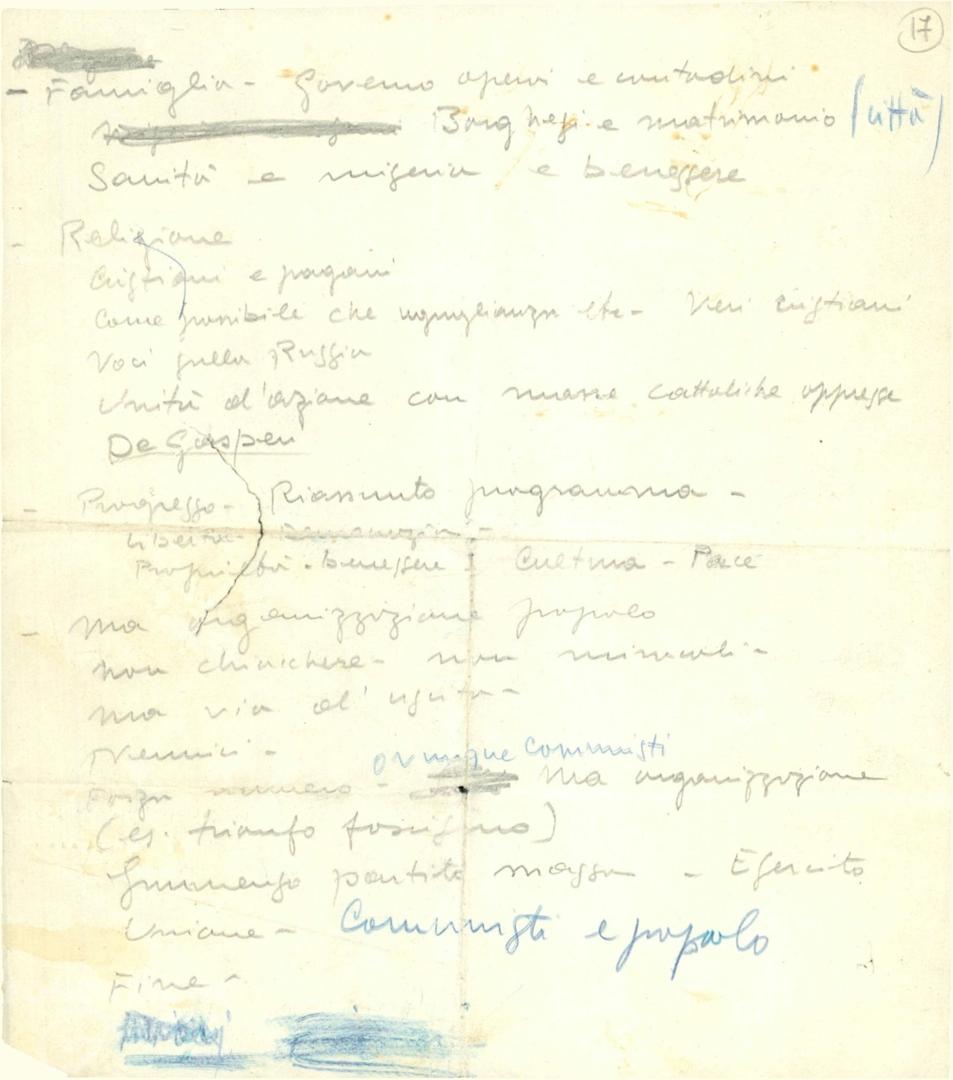 17
- Famiglia - Governo operai e contadini
Borghesi e matrimonio (città)
Sanità e miseria e benessere
- Religione
Cristiani e pagani
Come possibile che uguaglianza etc - Veri cristiani
Voci sulla Russia
Unità d'azione con masse cattoliche oppresse
De Gasperi
- Progresso - Riassunto programma -
Libertà - Democrazia -
Proprietà - benessere Cultura - Pace
- Ma organizzazione popolo
non chiacchere - non miracoli -
ma via d'uscita -
Nemici -
ovunque Comunisti
Forza numero - Ma organizzazione
(es. trionfo fascismo)
Immenso partito massa - Esercito
Unione - Comunisti e popolo
Fine -